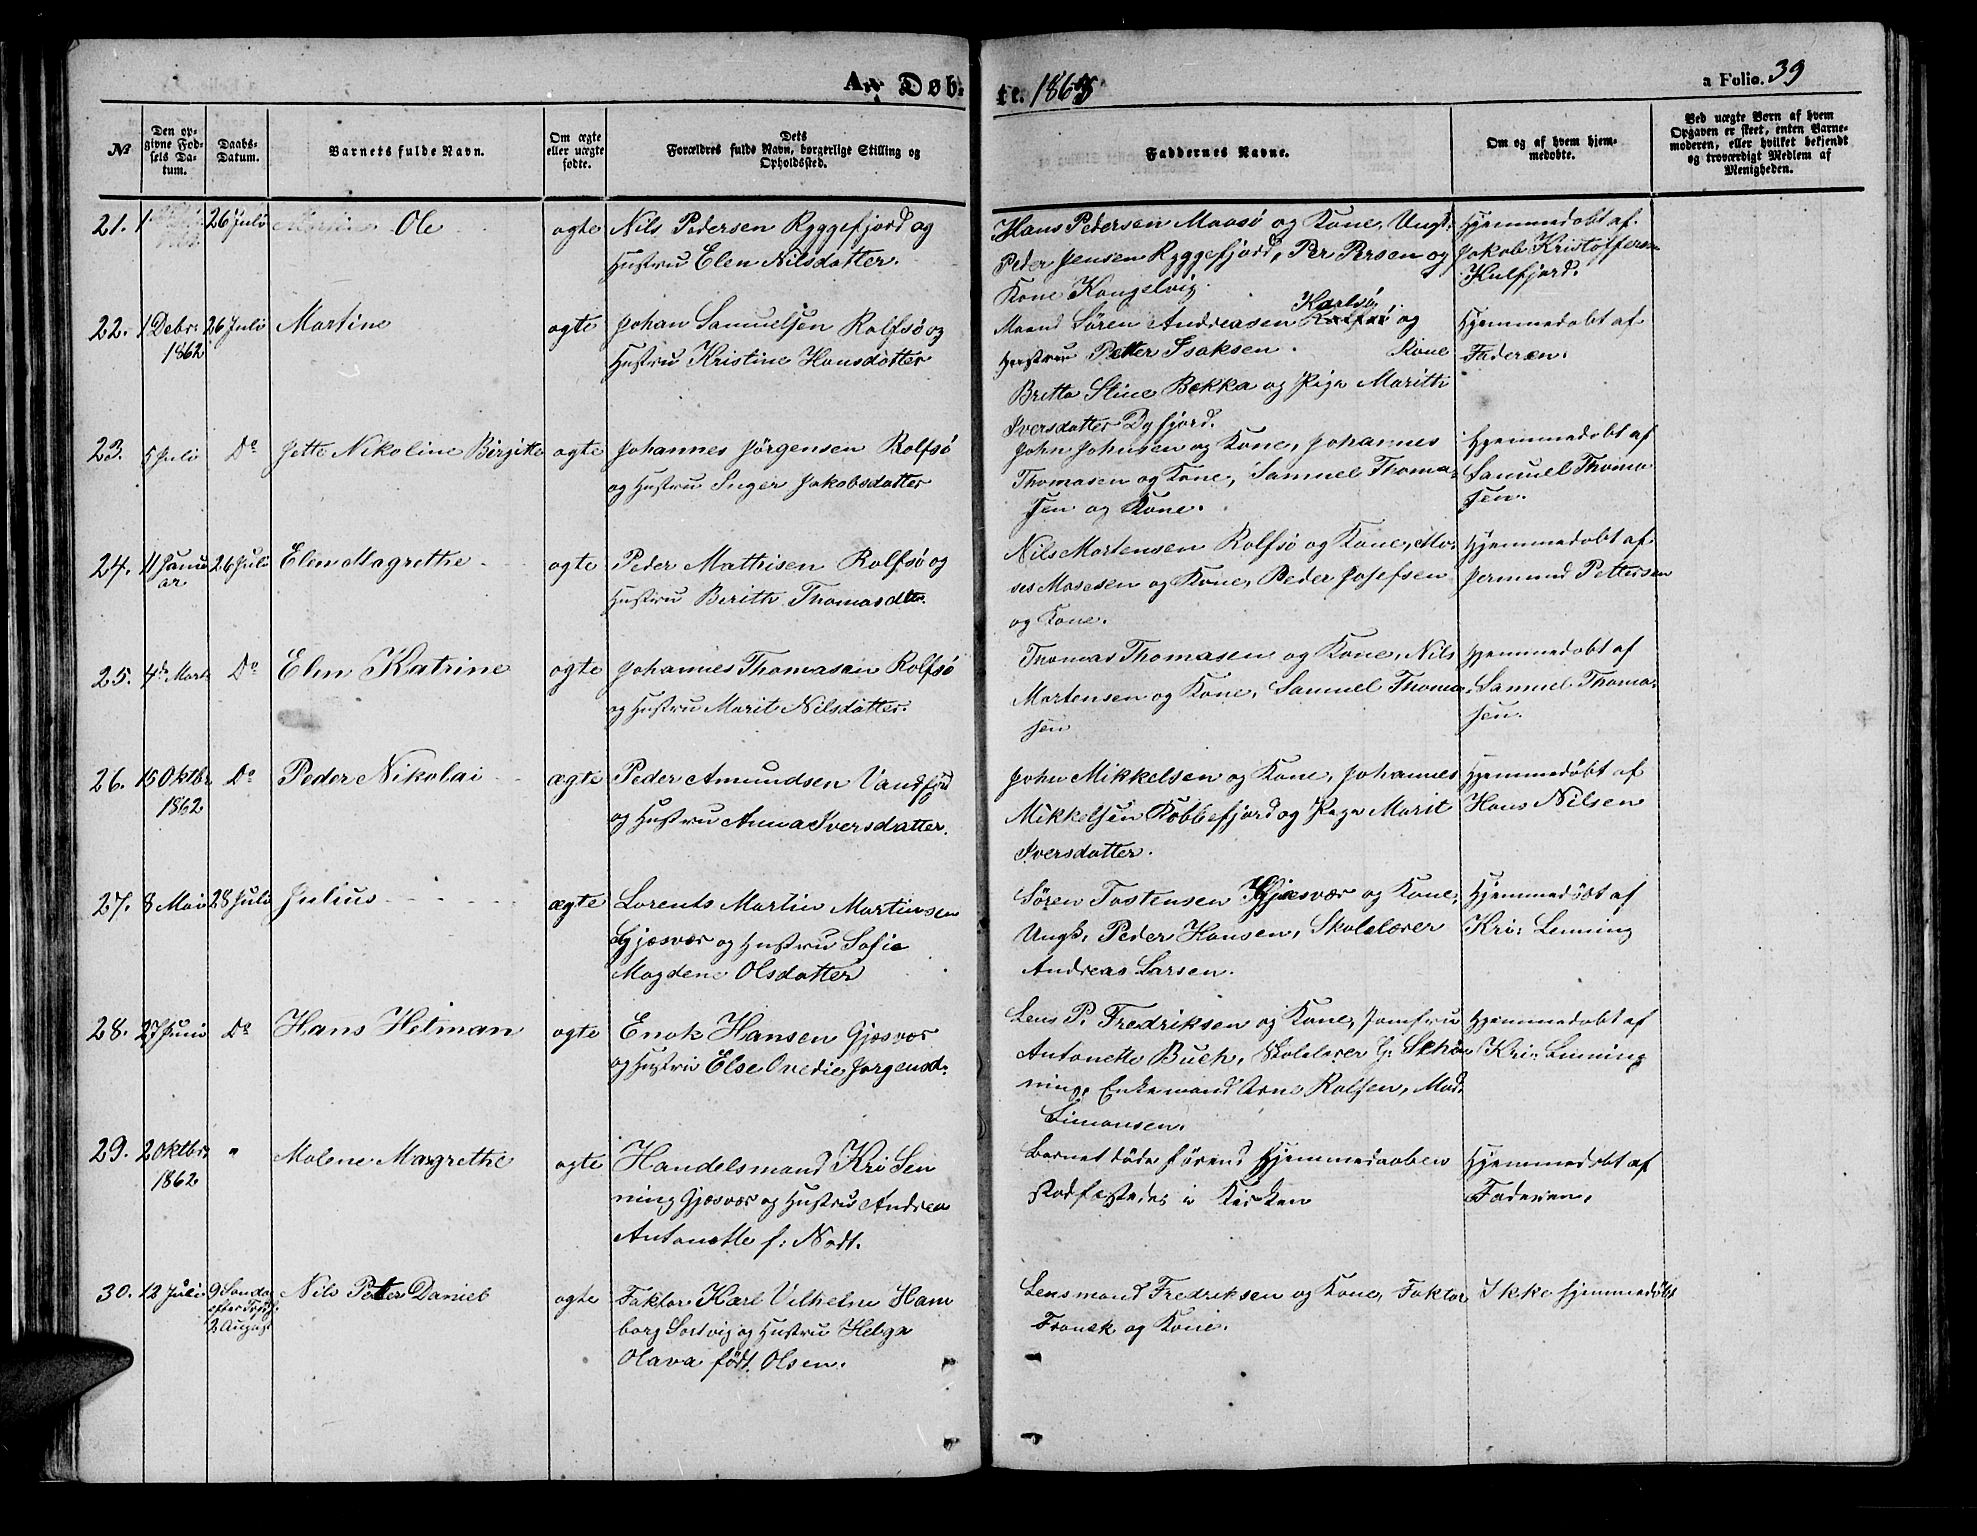 A. Døb-
te. 1863
a Folio. 39
No
Den op-
givne Fød-
sels Da-
tum.
Daabs-
Datum.
Barnets fulde Navn.
Om ægte
eller uægte
fødte.
Dets
Forældres fulde Navn, borgerligt Stilling og
Opholdssted.
Faddernes Navne.
Om og af hvem hjem-
medøbte.
Ved uægte Born af hvem
Opgaven er skeet, enten Barne-
moderen, eller hvilket bekjendt
og troværdigt Medlem af
Menigheden.
21. 1 26 Juli Ole ægte
Nils Pedersen Ryggefjord og
Hustru Elen Nilsdatter.
Hans Pedersen Maasø og Kone, Ungk.
Peder Jensen Ryggefjord, Per Persen og
Kone Kongelvig.
Hjemmedøbt af
Jakob Kristoffersen
Hulfjord.
22. 1 Debr. 26 Juli Martine ægte
1862
Johan Samuelsen Rolfsø og
Hustru Kristine Hansdatter
Maand Søren Andreasen Karlsø og
Hustru Petter Isaksen. Kone
Britta Stine Bekka og Pige Marith
Iversdatter Dyfjord.
Hjemmedøbt af
Faderen.
23. 5 Juli Do Jette Nikoline Birgitte ægte
Johannes Jörgensen Rolfsø
og Hustru Inger Jakobsdatter
John Johnsen og Kone, Johannes
Thomasen og Kone, Samuel Thoma-
sen og Kone.
Hjemmedøbt af
Samuel Thoma
sen.
24. 11 Janu 26 Juli Elen Magrethe ægte
ar
Peder Mathisen Rolfsø og
Hustru Berith Thomasdtr.
Nils Mortensen Rolfsø og Kone, Mo-
ses Mosesen og Kone, Peder Josefsen
og Kone.
Hjemmedøbt af
Jermund Pettersen
25. 4de Marts Do Elen Katrine ægte
Johannes Thomasen Rolfsø
og Hustru Marit Nilsdatter.
Thomas Thomasen og Kone, Nils
Mortensen og Kone, Samuel Thoma-
sen
Hjemmedøbt af
Samuel Thoma-
sen.
26. 15 Oktbr. Do Peder Nikolai ægte
1862
Peder Amundsen Vandfjord
og Hustru Anna Iversdatter.
John Mikkelsen og Kone, Johannes
Mikkelsen Kobbefjord og Pige Marit
Iversdatter.
Hjemmedøbt af
Hans Nilsen
27. 8 Mai 28 Juli Julius ægte
Lorents Martin Martinsen
Gjæsvær og Hustru Sofie
Magdene Olsdatter
Søren Tostensen Gjæsvær og Kone,
Ungk. Peder Hansen, Skolelærer
Andreas Larsen.
Hjemmedøbt af
Kri: Lenning
28. 27 Juni Do Hans Hetman ægte
Enok Hansen Gjæsvær
og Hustru Else Onedie Jorgensd.
Lens P. Fredriksen og Kone, Jomfru
Antonette Buch, Skolelærer G. Schøn
ning, Enkemand Arne Rolfsen, Mad.
Simonsen.
Hjemmedøbt af
Kri: Lenning
29. 2 Oktbr. " Malene Margrethe ægte
1862
Handelsmand Kri Len
ning Gjæsvær og Hustru Andrea
Antonette f: Nodt.
Barnet døde førend Hjemmedaaben
stadfæstedes i Kirken
Hjemmedøbt af
Faderen.
30. 12 Juli 9 Søndag Nils Peter Daniel ægte
efter Tref.
2 August
Faktor Karl Vilhelm Ham
borg Sortvig og Hustru Helga
Olava født Olsen.
Lensmand Fredriksen og Kone, Faktor
Franck og Kone.
Ikke hjemmedøbt